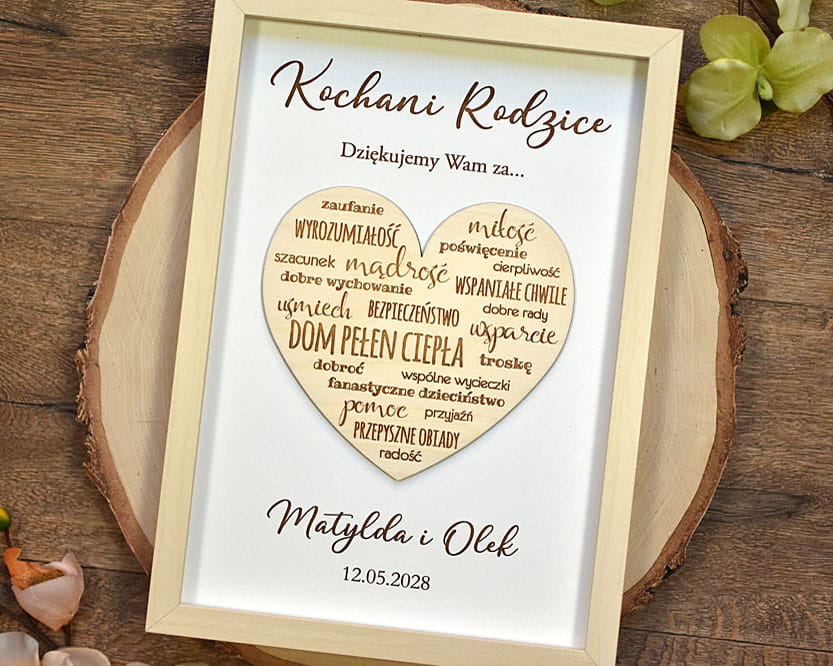 Kochani Rodzice
Dziękujemy Wam za...
zaufanie
miłość
WYROZUMIAŁOŚĆ
poświęcenie
szacunek mądrość cierpliwość
dobre wychowanie WSPANIAŁE CHWILE
uśmiech BEZPIECZEŃSTWO dobre rady
wsparcie
DOM PEŁEN CIEPŁA troskę
dobroć wspólne wycieczki
fanastyczne dzieciństwo
pomoc przyjaźń
PRZEPYSZNE OBIADY
radość
Matylda i Olek
12.05.2028